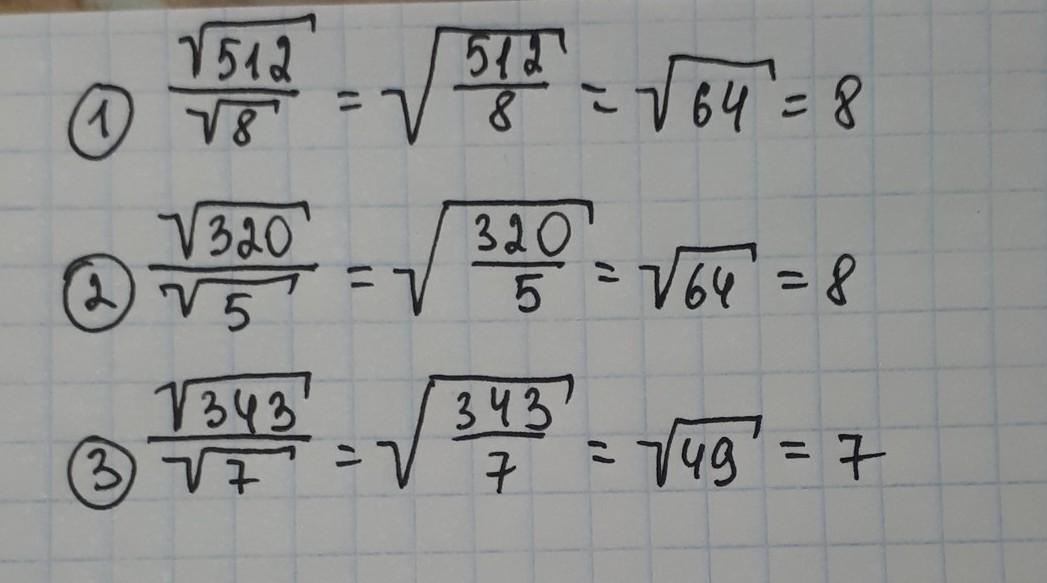 ① √512/√8 = √(512/8) = √64 = 8
② √320/√5 = √(320/5) = √64 = 8
③ √343/√7 = √(343/7) = √49 = 7